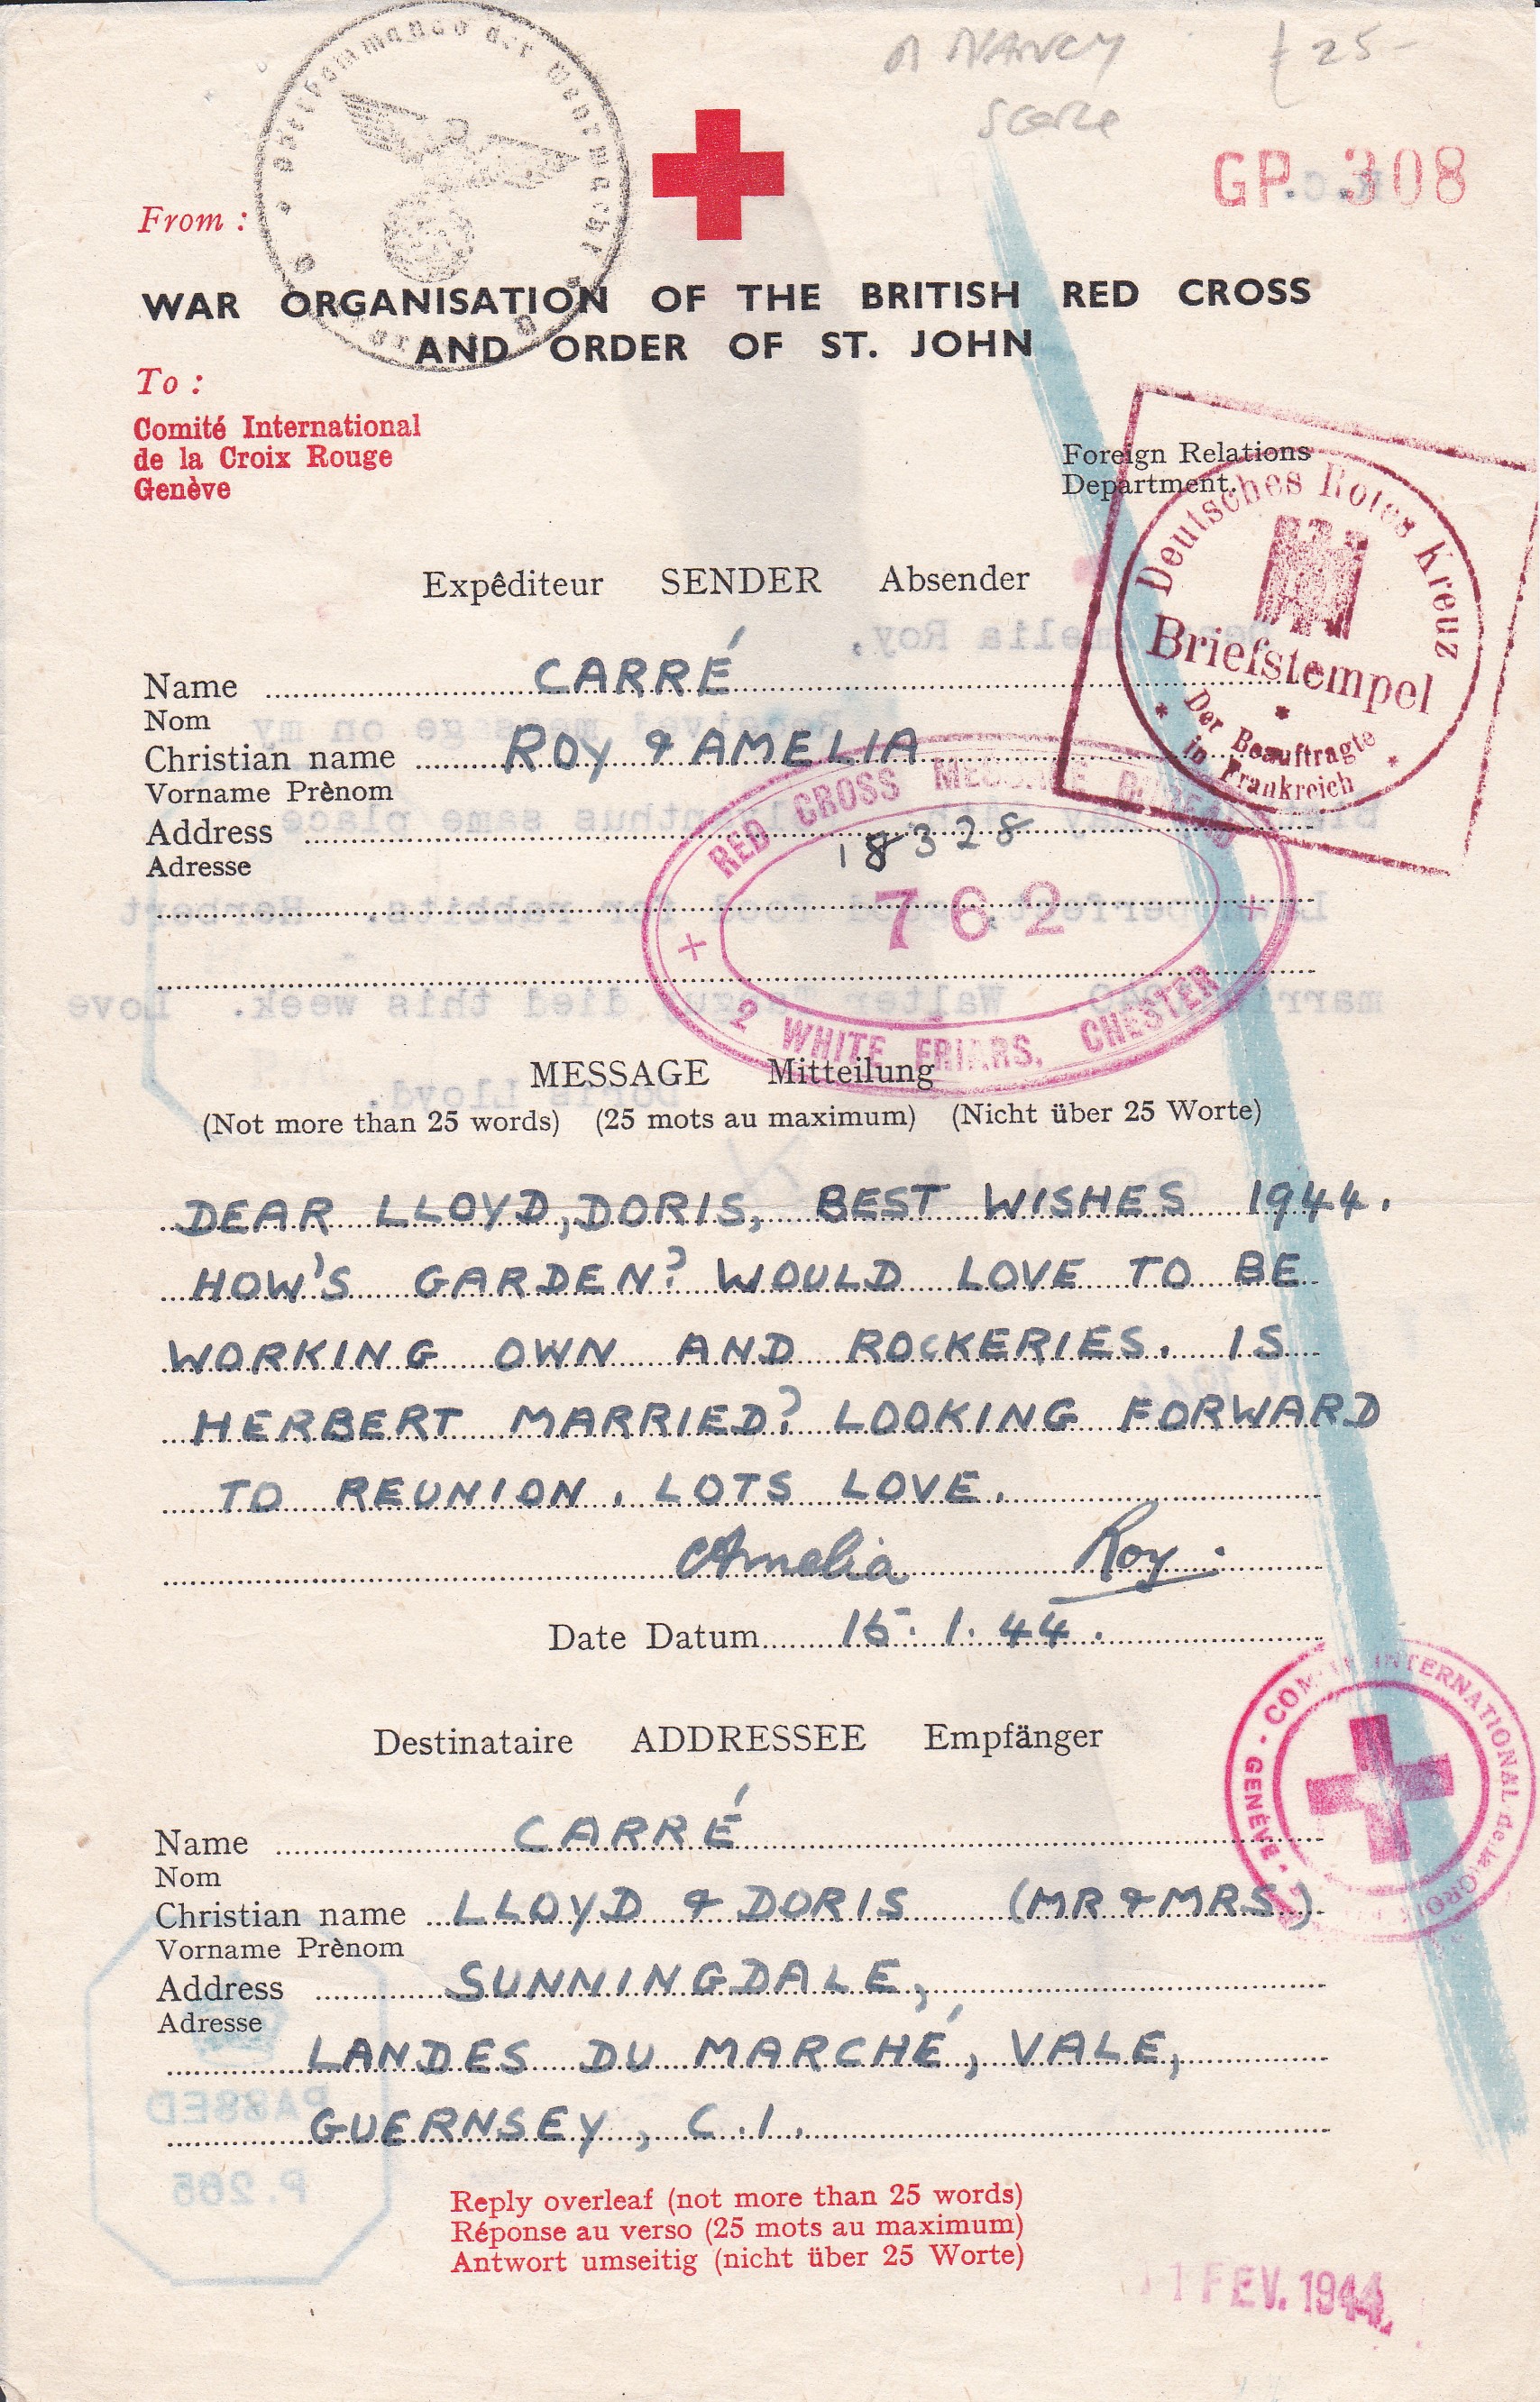 NANCY £25-
scarce
Oberkommando der Wehrmacht
GP. 308
From :
WAR ORGANISATION OF THE BRITISH RED CROSS
AND ORDER OF ST. JOHN
To :
Comité International
de la Croix Rouge
Genève
Foreign Relations
Department.
Deutsches Rotes Kreuz
Briefstempel
Der Beauftragte
in Frankreich
Expêditeur SENDER Absender
Name CARRÉ
Nom
Christian name ROY & AMELIA
Vorname Prènom
Address
Adresse
18328
RED CROSS MESSAGE BUREAU
762
2 WHITE FRIARS, CHESTER
MESSAGE Mitteilung
(Not more than 25 words) (25 mots au maximum) (Nicht über 25 Worte)
DEAR LLOYD, DORIS, BEST WISHES 1944.
HOW'S GARDEN? WOULD LOVE TO BE
WORKING OWN AND ROCKERIES. IS
HERBERT MARRIED? LOOKING FORWARD
TO REUNION. LOTS LOVE.
Amelia Roy.
Date Datum 15.1.44.
COMITÉ INTERNATIONAL de la CROIX GENÈVE
Destinataire ADDRESSEE Empfänger
Name CARRÉ
Nom
Christian name LLOYD & DORIS (MR & MRS.)
Vorname Prènom
Address SUNNINGDALE,
Adresse
LANDES DU MARCHÉ, VALE,
GUERNSEY, C.I.
PASSED
P.265
Reply overleaf (not more than 25 words)
Réponse au verso (25 mots au maximum)
Antwort umseitig (nicht über 25 Worte)
1 FEV. 1944